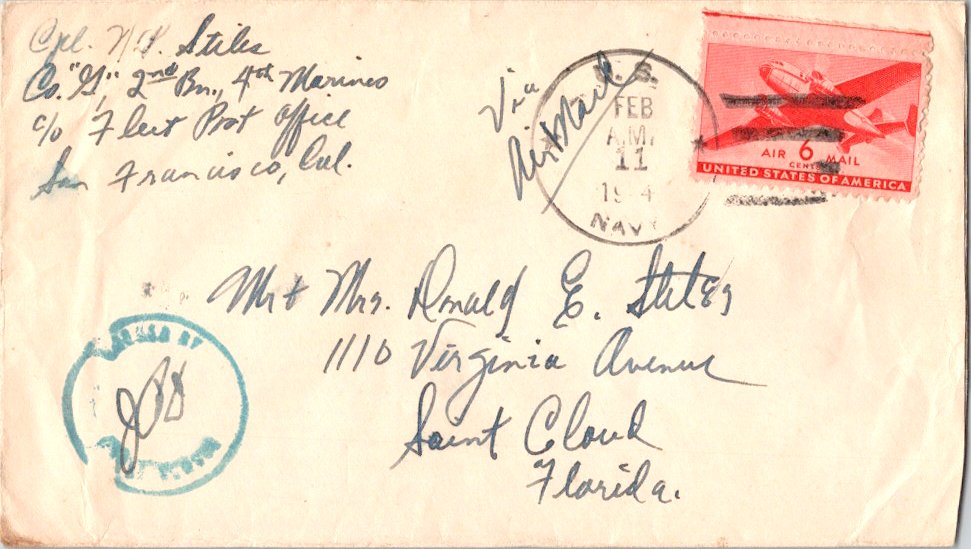 Cpl. N.D. Stiles
Co. "G", 2nd Bn., 4th Marines
c/o Fleet Post Office
San Francisco, Cal.
Via
Air Mail
U. S.
FEB
A.M.
11
194
NAVY
AIR 6 MAIL
CENTS
UNITED STATES OF AMERICA
Mr & Mrs. Donald E. Stiles
1110 Virginia Avenue
Saint Cloud
Florida.
BY